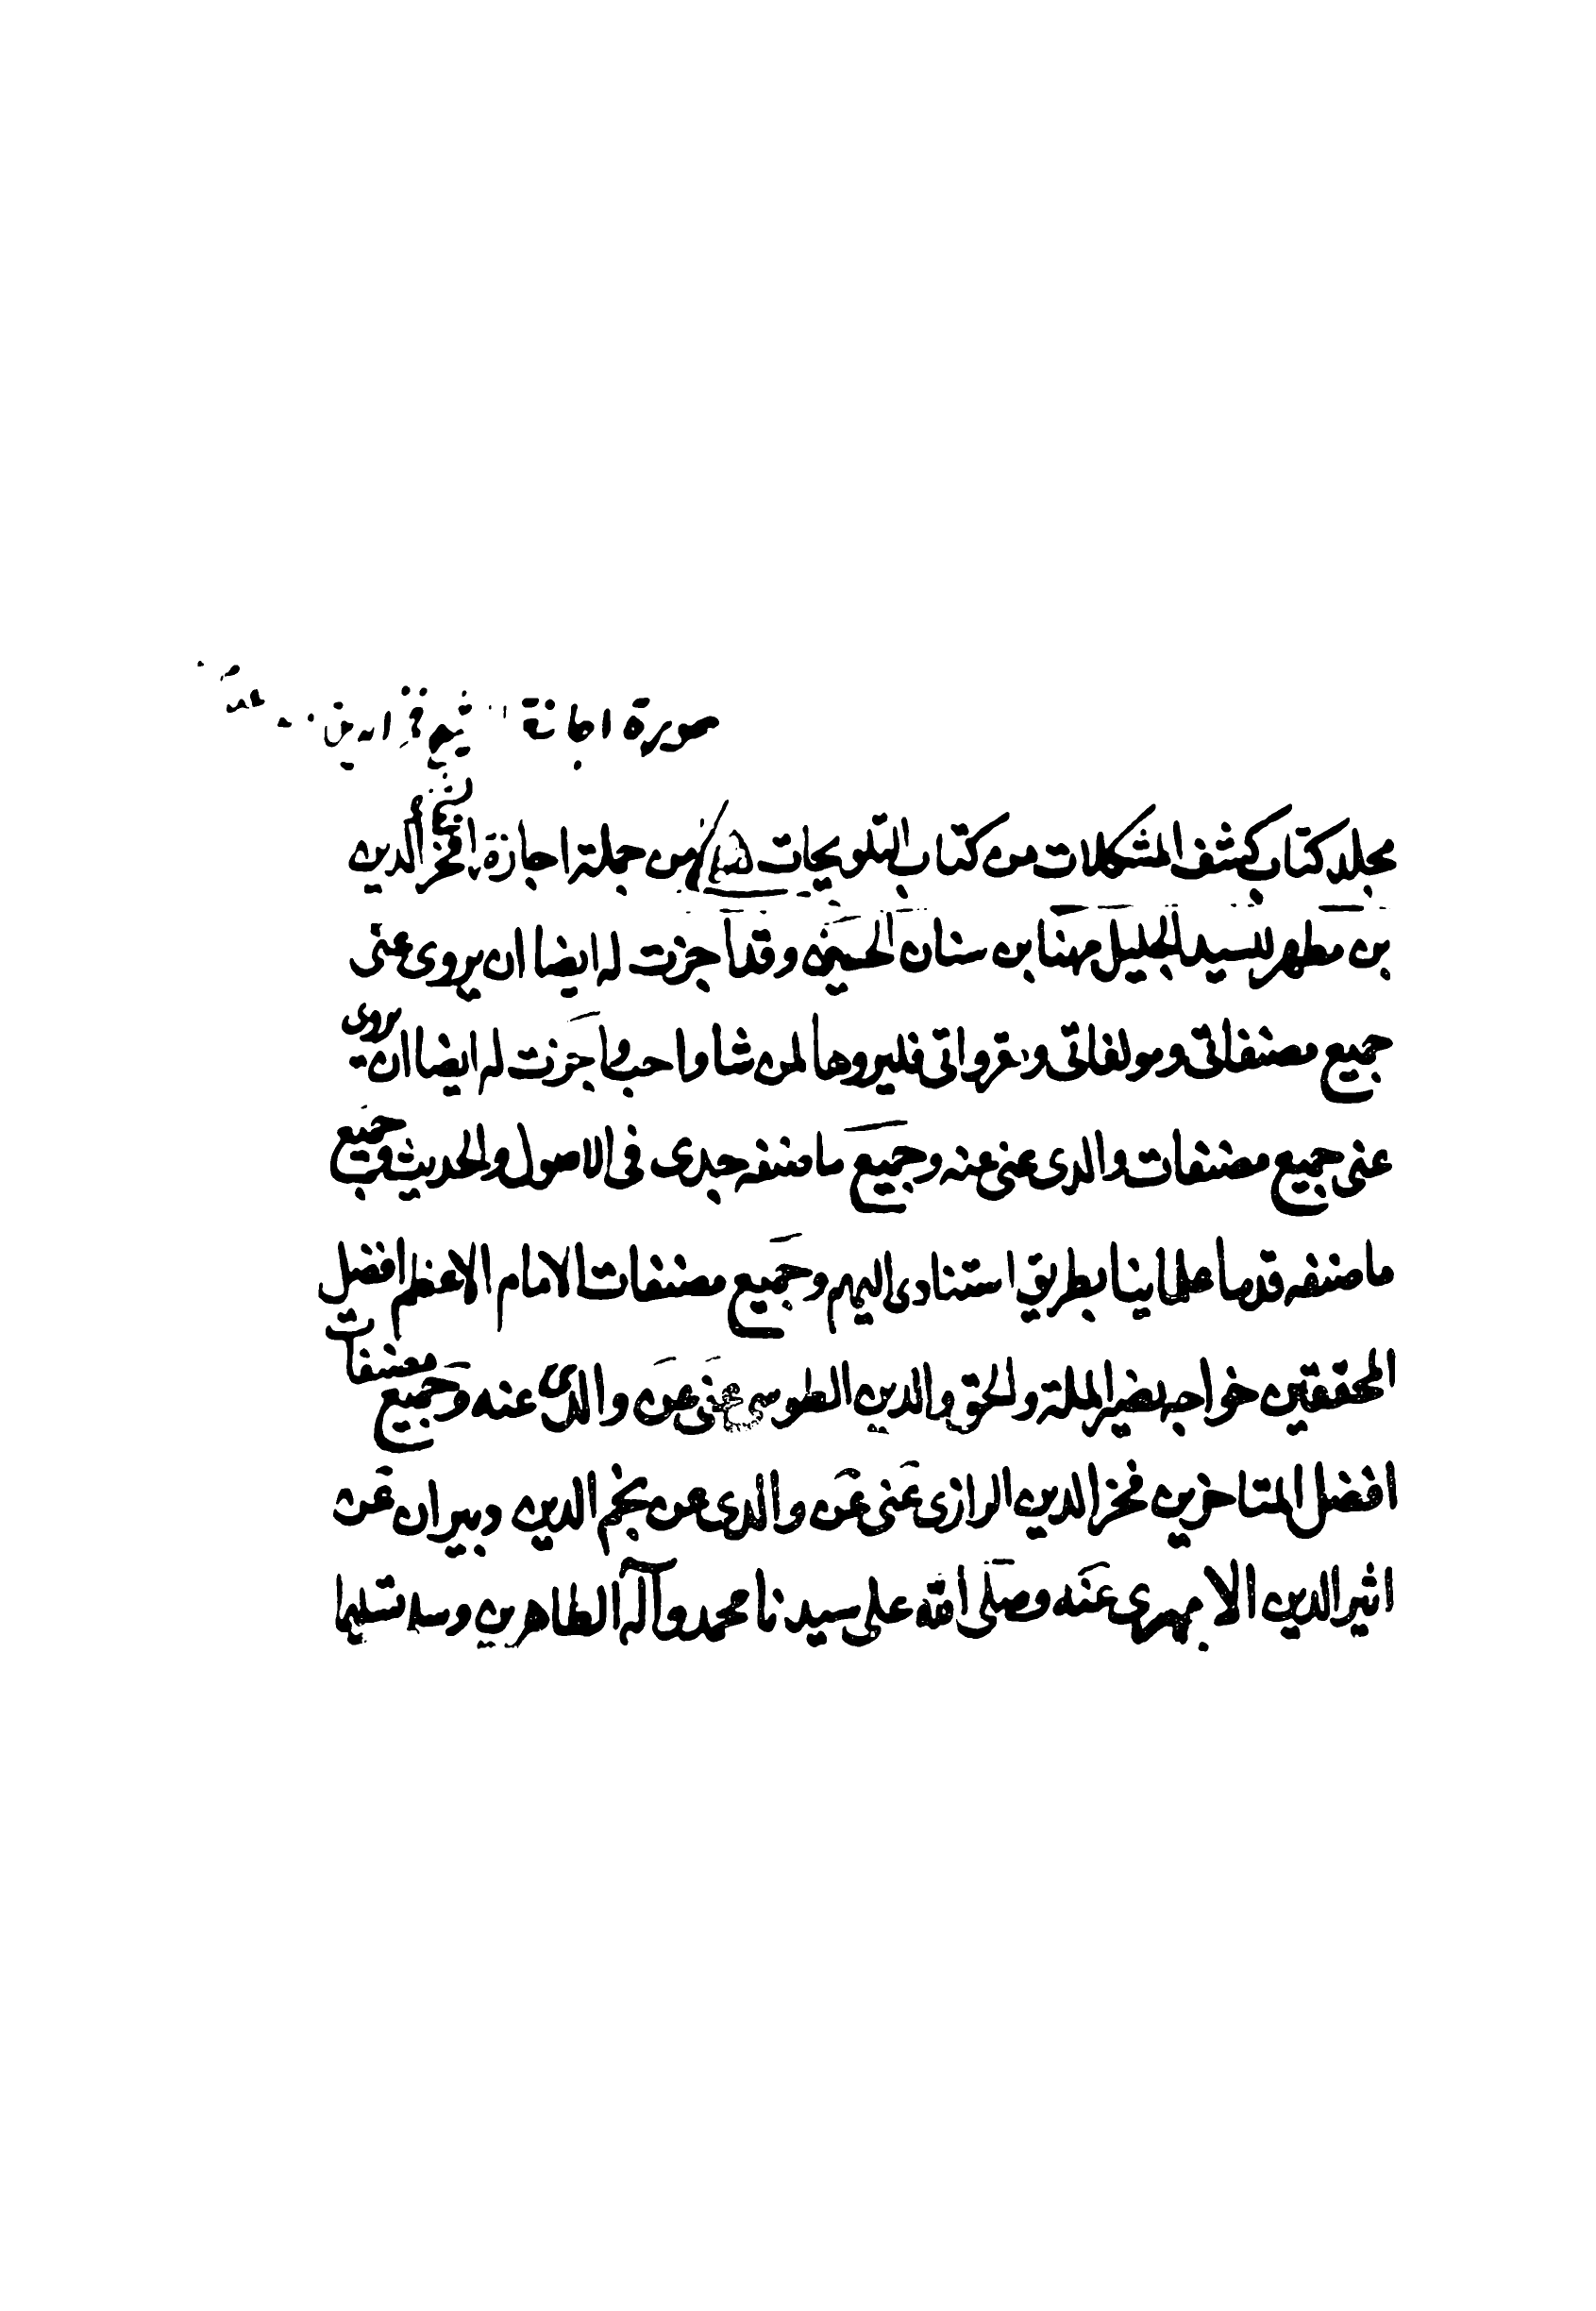 صورة اجازة الشيخ فخر الدين
مجلد كتاب كشف المشكلات من كتاب التلويحات من جملة اجازة الشيخ فخر الدين
بن مطهر للسيد الجليل مهنا بن سنان الحسيني وقد اجزت له ايضا ان يروى عنى
جميع مصنفاتى ومولفاتى ومقرواتى فليروها لمن شا واحب واجزت له ايضا ان يروى
عنى جميع مصنفات والدى عنى عنه وجميع ما صنفه جدى فى الاصول والحديث وجميع
ما صنفه قدما علماينا بطريق استنادى اليهم وجميع مصنفات الامام الاعظم افضل
المحققين خواجه نصير الملة والحق والدين الطوسى عنى عن والدى عنه وجميع مصنفات
افضل المتاخرين فخر الدين الرازى عنى عن والدى عن نجم الدين دبيران عن
اثير الدين الابهرى عنه وصلى الله على سيدنا محمد وآله الطاهرين وسلم تسليما